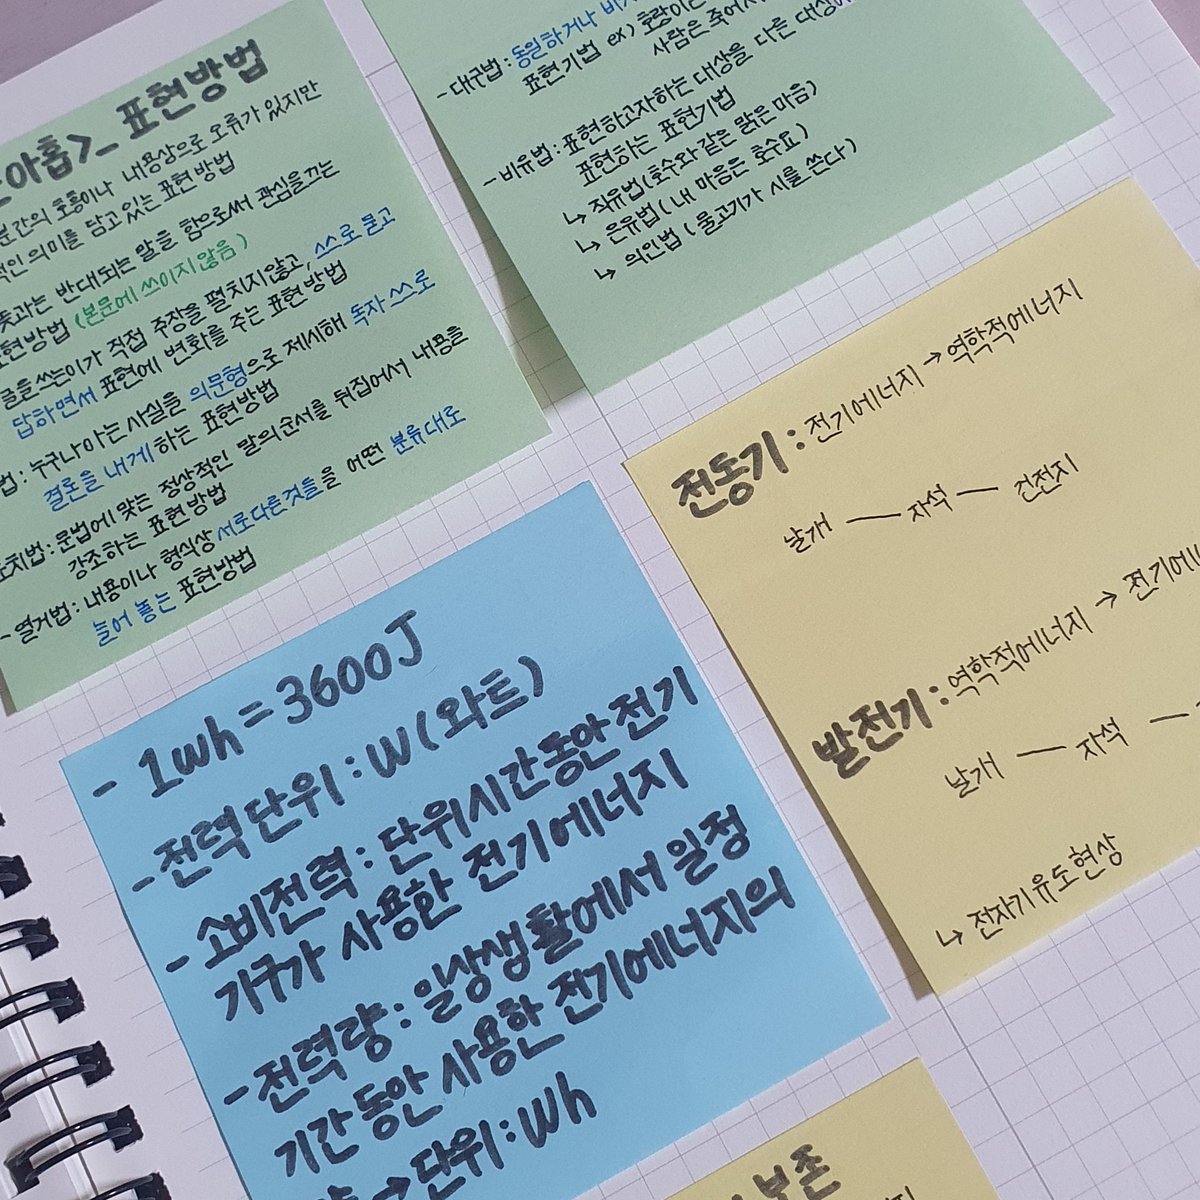 아홉>_ 표현방법
호흡이나 내용상으로 오류가 있지만
의미를 담고 있는 표현 방법
뜻과는 반대되는 말을 함으로써 관심을끄는
표현방법 (본문에 쓰이지않음)
글을쓰는이가 직접 주장을 펼치지않고, 스스로 묻고
답하면서 표현에 변화를 주는 표현방법
법 : 누구나 아는 사실을 의문형으로 제시해 독자 스스로
결론을 내게하는 표현방법
도치법 : 문법에 맞는 정상적인 말의순서를 뒤집어서 내용을
강조하는 표현방법
- 열거법 : 내용이나 형식상 서로다른것들을 어떤 분류대로
늘어 놓는 표현방법
- 대구법 : 동일하거나
표현기법 ex) 호랑이는
사람은 죽어서
- 비유법 : 표현하고자하는 대상을 다른 대상에
표현하는 표현기법
↳ 직유법 (호수와 같은 맑은 마음)
↳ 은유법 ( 내 마음은 호수요)
↳ 의인법 ( 물고기가 시를 쓴다)
전동기 : 전기에너지 → 역학적에너지
날개 — 자석 — 건전지
발전기 : 역학적에너지 → 전기에
날개 — 자석 —
↳ 전자기유도현상
- 1wh = 3600J
- 전력단위 : W (와트)
- 소비전력 : 단위시간동안 전기
기구가 사용한 전기에너지
- 전력량 : 일상생활에서 일정
기간 동안 사용한 전기에너지의
→ 단위 : Wh
보존